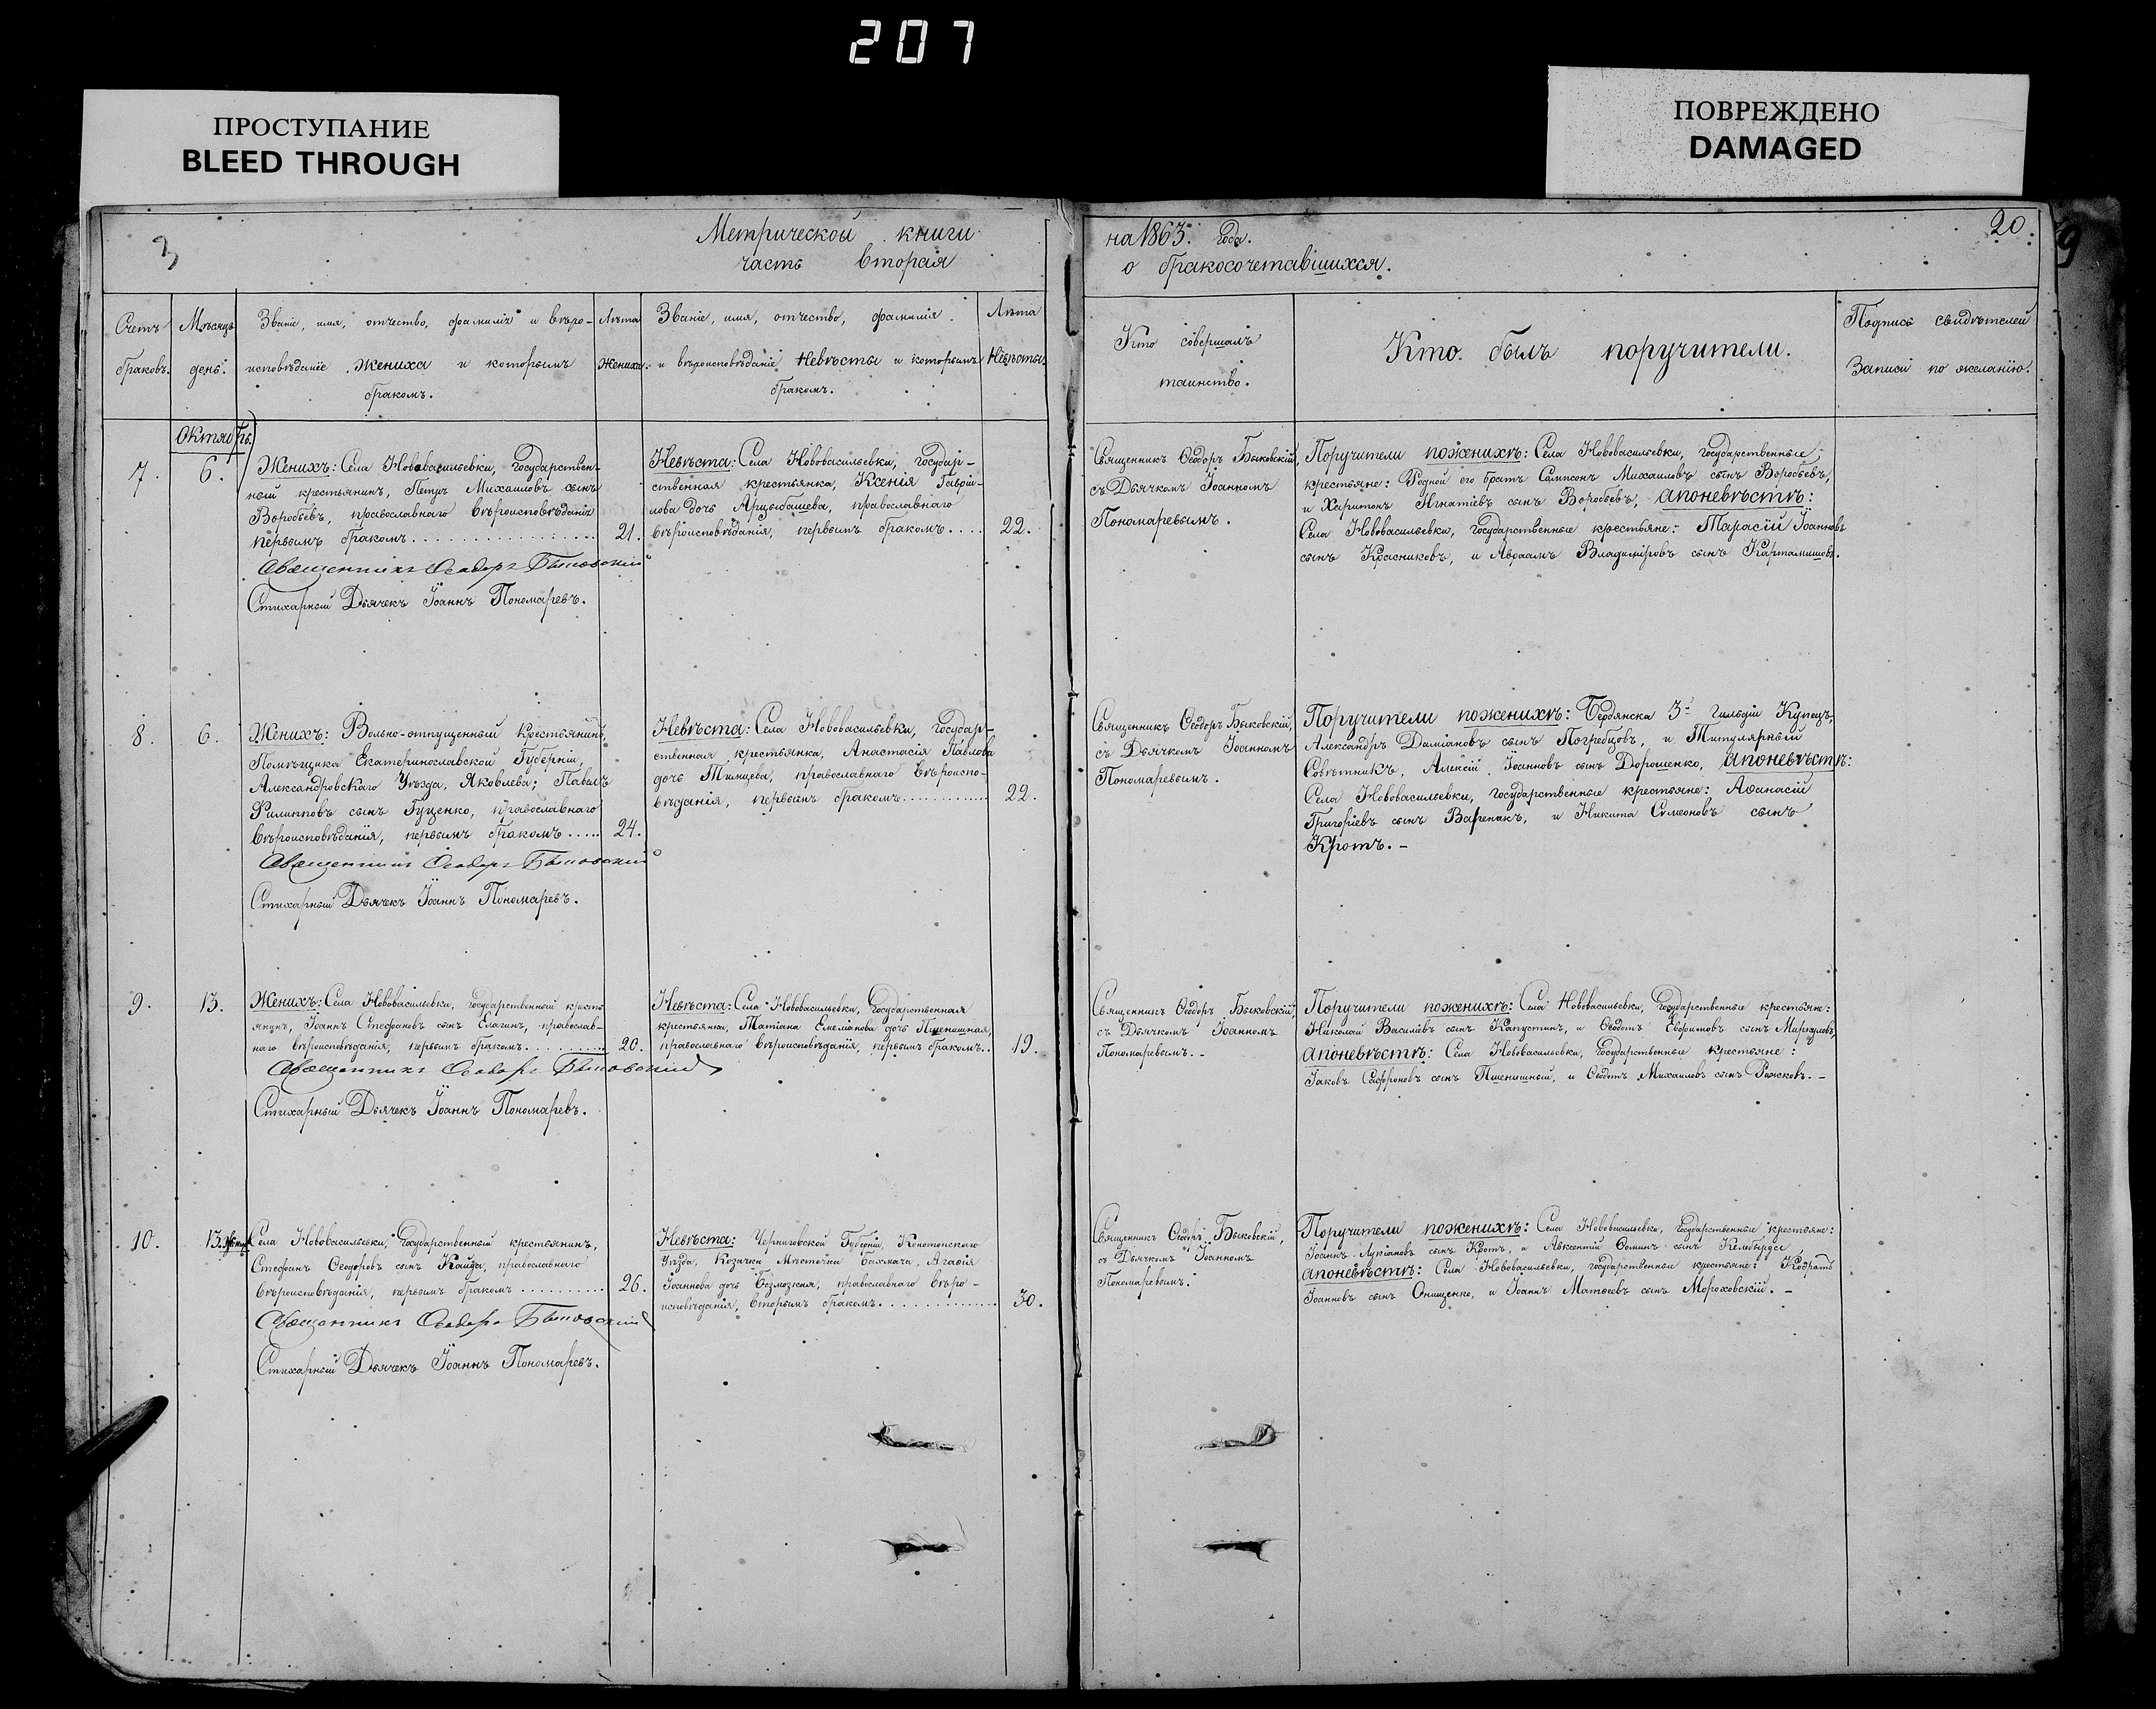 207
ПРОСТУПАНИЕ
BLEED THROUGH
ПОВРЕЖДЕНО
DAMAGED
3
Метрической книги
часть вторая
на 1863. года.
о бракосочетавшихся.
20.
9
Счетъ
браковъ.
Мѣсяцъ
день.
Званіе, имя, отчество, фамилія и вѣро-
исповѣданіе жениха и которымъ
бракомъ.
Лѣта
жениха.
Званіе, имя, отчество, фамилія
и вѣроисповѣданіе невѣсты и которымъ
бракомъ.
Лѣта
Невѣсты.
Кто совершалъ
таинство.
Кто былъ поручители.
Подписи свидѣтелей
Записи по желанію.
Октябрь.
7.
6.
Женихъ: Села Нововасильевки, государствен-
ный крестьянинъ, Петръ Михаиловъ сынъ
Воробьевъ, православнаго вѣроисповѣданія
первымъ бракомъ.....
21.
Священникъ Ѳеодоръ Быковскій
Стихарный Дьячекъ Іоаннъ Пономаревъ.
Невѣста: Села Нововасильевки, государ-
ственная крестьянка, Ксенія Гаврии-
лова дочь Арцыбашева, православнаго
вѣроисповѣданія, первымъ бракомъ....
22.
Священникъ Ѳеодоръ Быковскій,
съ Дьячкомъ Іоанномъ
Пономаревымъ.
Поручители по женихѣ: Села Нововасильевки, государственные
крестьяне: Родной его братъ Сампсонъ Михаиловъ сынъ Воробьевъ,
и Харитонъ Игнатіевъ сынъ Воробьевъ, а по невѣстѣ:
Села Нововасильевки, государственные крестьяне: Тарасій Іоанновъ
сынъ Красниковъ, и Авраамъ Владиміровъ сынъ Картамышовъ.
8.
6.
Женихъ: Вольно-отпущенный крестьянинъ,
Помѣщика Екатеринославской Губерніи,
Александровскаго Уѣзда, Яковлева; Павелъ
Филипповъ сынъ Гуценко, православнаго
вѣроисповѣданія, первымъ бракомъ.....
24.
Священникъ Ѳеодоръ Быковскій
Стихарный Дьячекъ Іоаннъ Пономаревъ.
Невѣста: Села Нововасильевки, государ-
ственная крестьянка, Анастасія Павлова
дочь православнаго вѣроиспо-
вѣданія, первымъ бракомъ.....
22.
Священникъ Ѳеодоръ Быковскій,
съ Дьячкомъ Іоанномъ
Пономаревымъ.
Поручители по женихѣ: Бердянска 3й Гильдіи Купецъ,
Александръ Даміановъ сынъ Погребцовъ, и Титулярный
Совѣтникъ, Алексій Іоанновъ сынъ Дорошенко, а по невѣстѣ:
Села Нововасильевки, государственные крестьяне: Аѳанасій
Григоріевъ сынъ Варенакъ, и Никита Симеоновъ сынъ
Кротъ. –
9.
13.
Женихъ: Села Нововасильевки, государственный кресть-
янинъ, Іоаннъ Стефановъ сынъ Елагинъ, православ-
наго вѣроисповѣданія, первымъ бракомъ.....
20.
Священникъ Ѳеодоръ Быковскій
Стихарный Дьячекъ Іоаннъ Пономаревъ.
Невѣста: Села Нововасильевки, государственная
крестьянка, Татіана Емеліанова дочь Пшенишная,
православнаго вѣроисповѣданія, первымъ бракомъ..
19.
Священникъ Ѳеодоръ Быковскій,
съ Дьячкомъ Іоанномъ
Пономаревымъ. –
Поручители по женихѣ: Села Нововасильевки, государственные крестьяне:
Николай Василіевъ сынъ Капустинъ, и Ѳеодотъ Евфимовъ сынъ Миркуловъ,
а по невѣстѣ: Села Нововасильевки, государственные крестьяне:
Іаковъ Сафроновъ сынъ Пшенишный, и Ѳеодотъ Михаиловъ сынъ Рожковъ. –
10.
13.
Женихъ
Села Нововасильевки, государственный крестьянинъ,
Стефанъ Ѳеодоровъ сынъ Кайда, православнаго
вѣроисповѣданія, первымъ бракомъ.....
26.
Священникъ Ѳеодоръ Быковскій
Стихарный Дьячекъ Іоаннъ Пономаревъ.
Невѣста: Черниговской Губерніи, Конотопскаго
Уѣзда, Козачка Мѣстечка Бахмача, Агаѳія
Іоаннова дочь Безмозжая, православнаго вѣро-
исповѣданія, вторымъ бракомъ.....
30.
Священникъ Ѳеодоръ Быковскій,
съ Дьячкомъ Іоанномъ
Пономаревымъ.
Поручители по женихѣ: Села Нововасильевки, государственные крестьяне:
Іоаннъ Лукіановъ сынъ Кротъ, и Авксентій Ѳоминъ сынъ
а по невѣстѣ: Села Нововасильевки, государственные крестьяне: Кодратъ
Іоанновъ сынъ Онищенко, и Іоаннъ Матѳеевъ сынъ Мороховскій. –